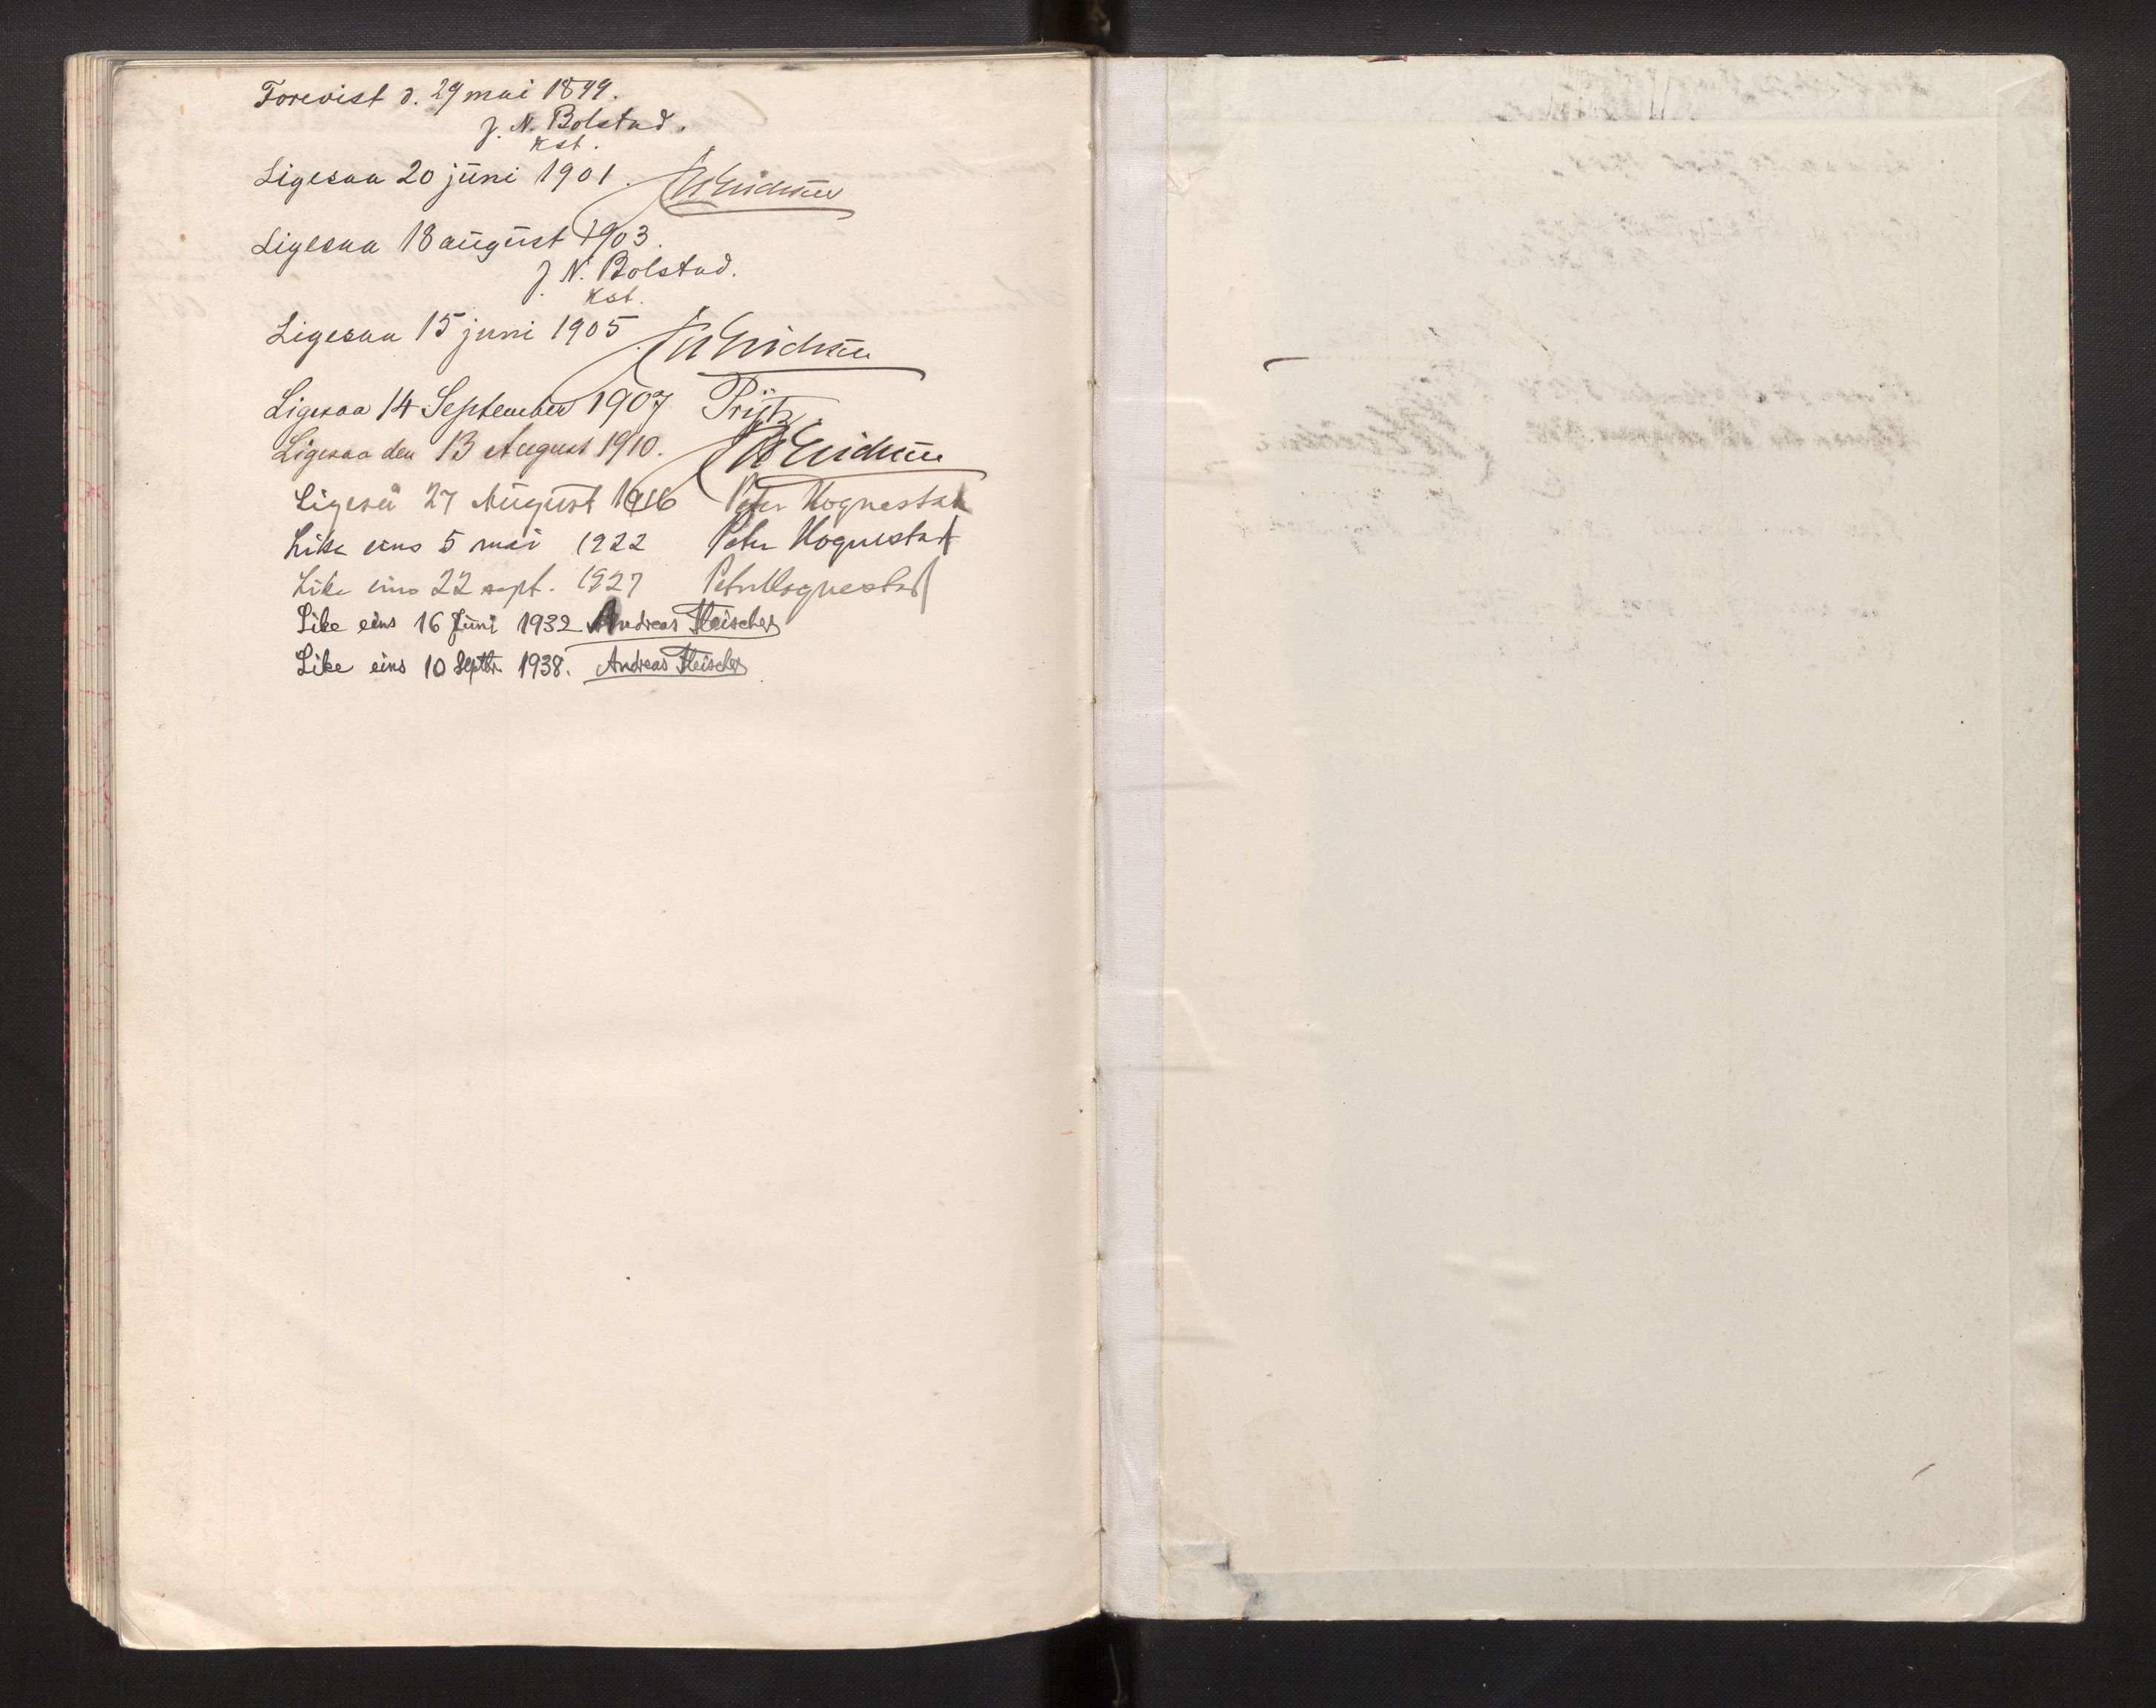 Forevist d. 29 mai 1899.
J. N. Bolstad.
Kst.
Ligesaa 20 juni 1901.
Ligesaa 18 august 1903.
J. N. Bolstad.
Kst.
Ligesaa 15 juni 1905
Ligesaa 14 September 1907 Prytz
Ligesaa den 13 August 1910.
Ligeså 27 August 1916 Peter Hognestad
Like eins 5 mai 1922 Peter Hognestad
Like eins 22 sept. 1927 Peter Hognestad
Like eins 16 Juni 1932 Andreas Fleischer
Like eins 10 Septbr. 1938. Andreas Fleischer